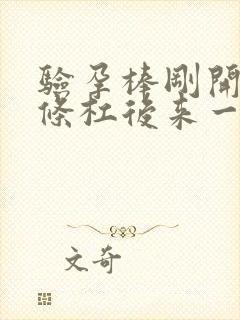 驗孕棒剛開
條杠後來一
文奇